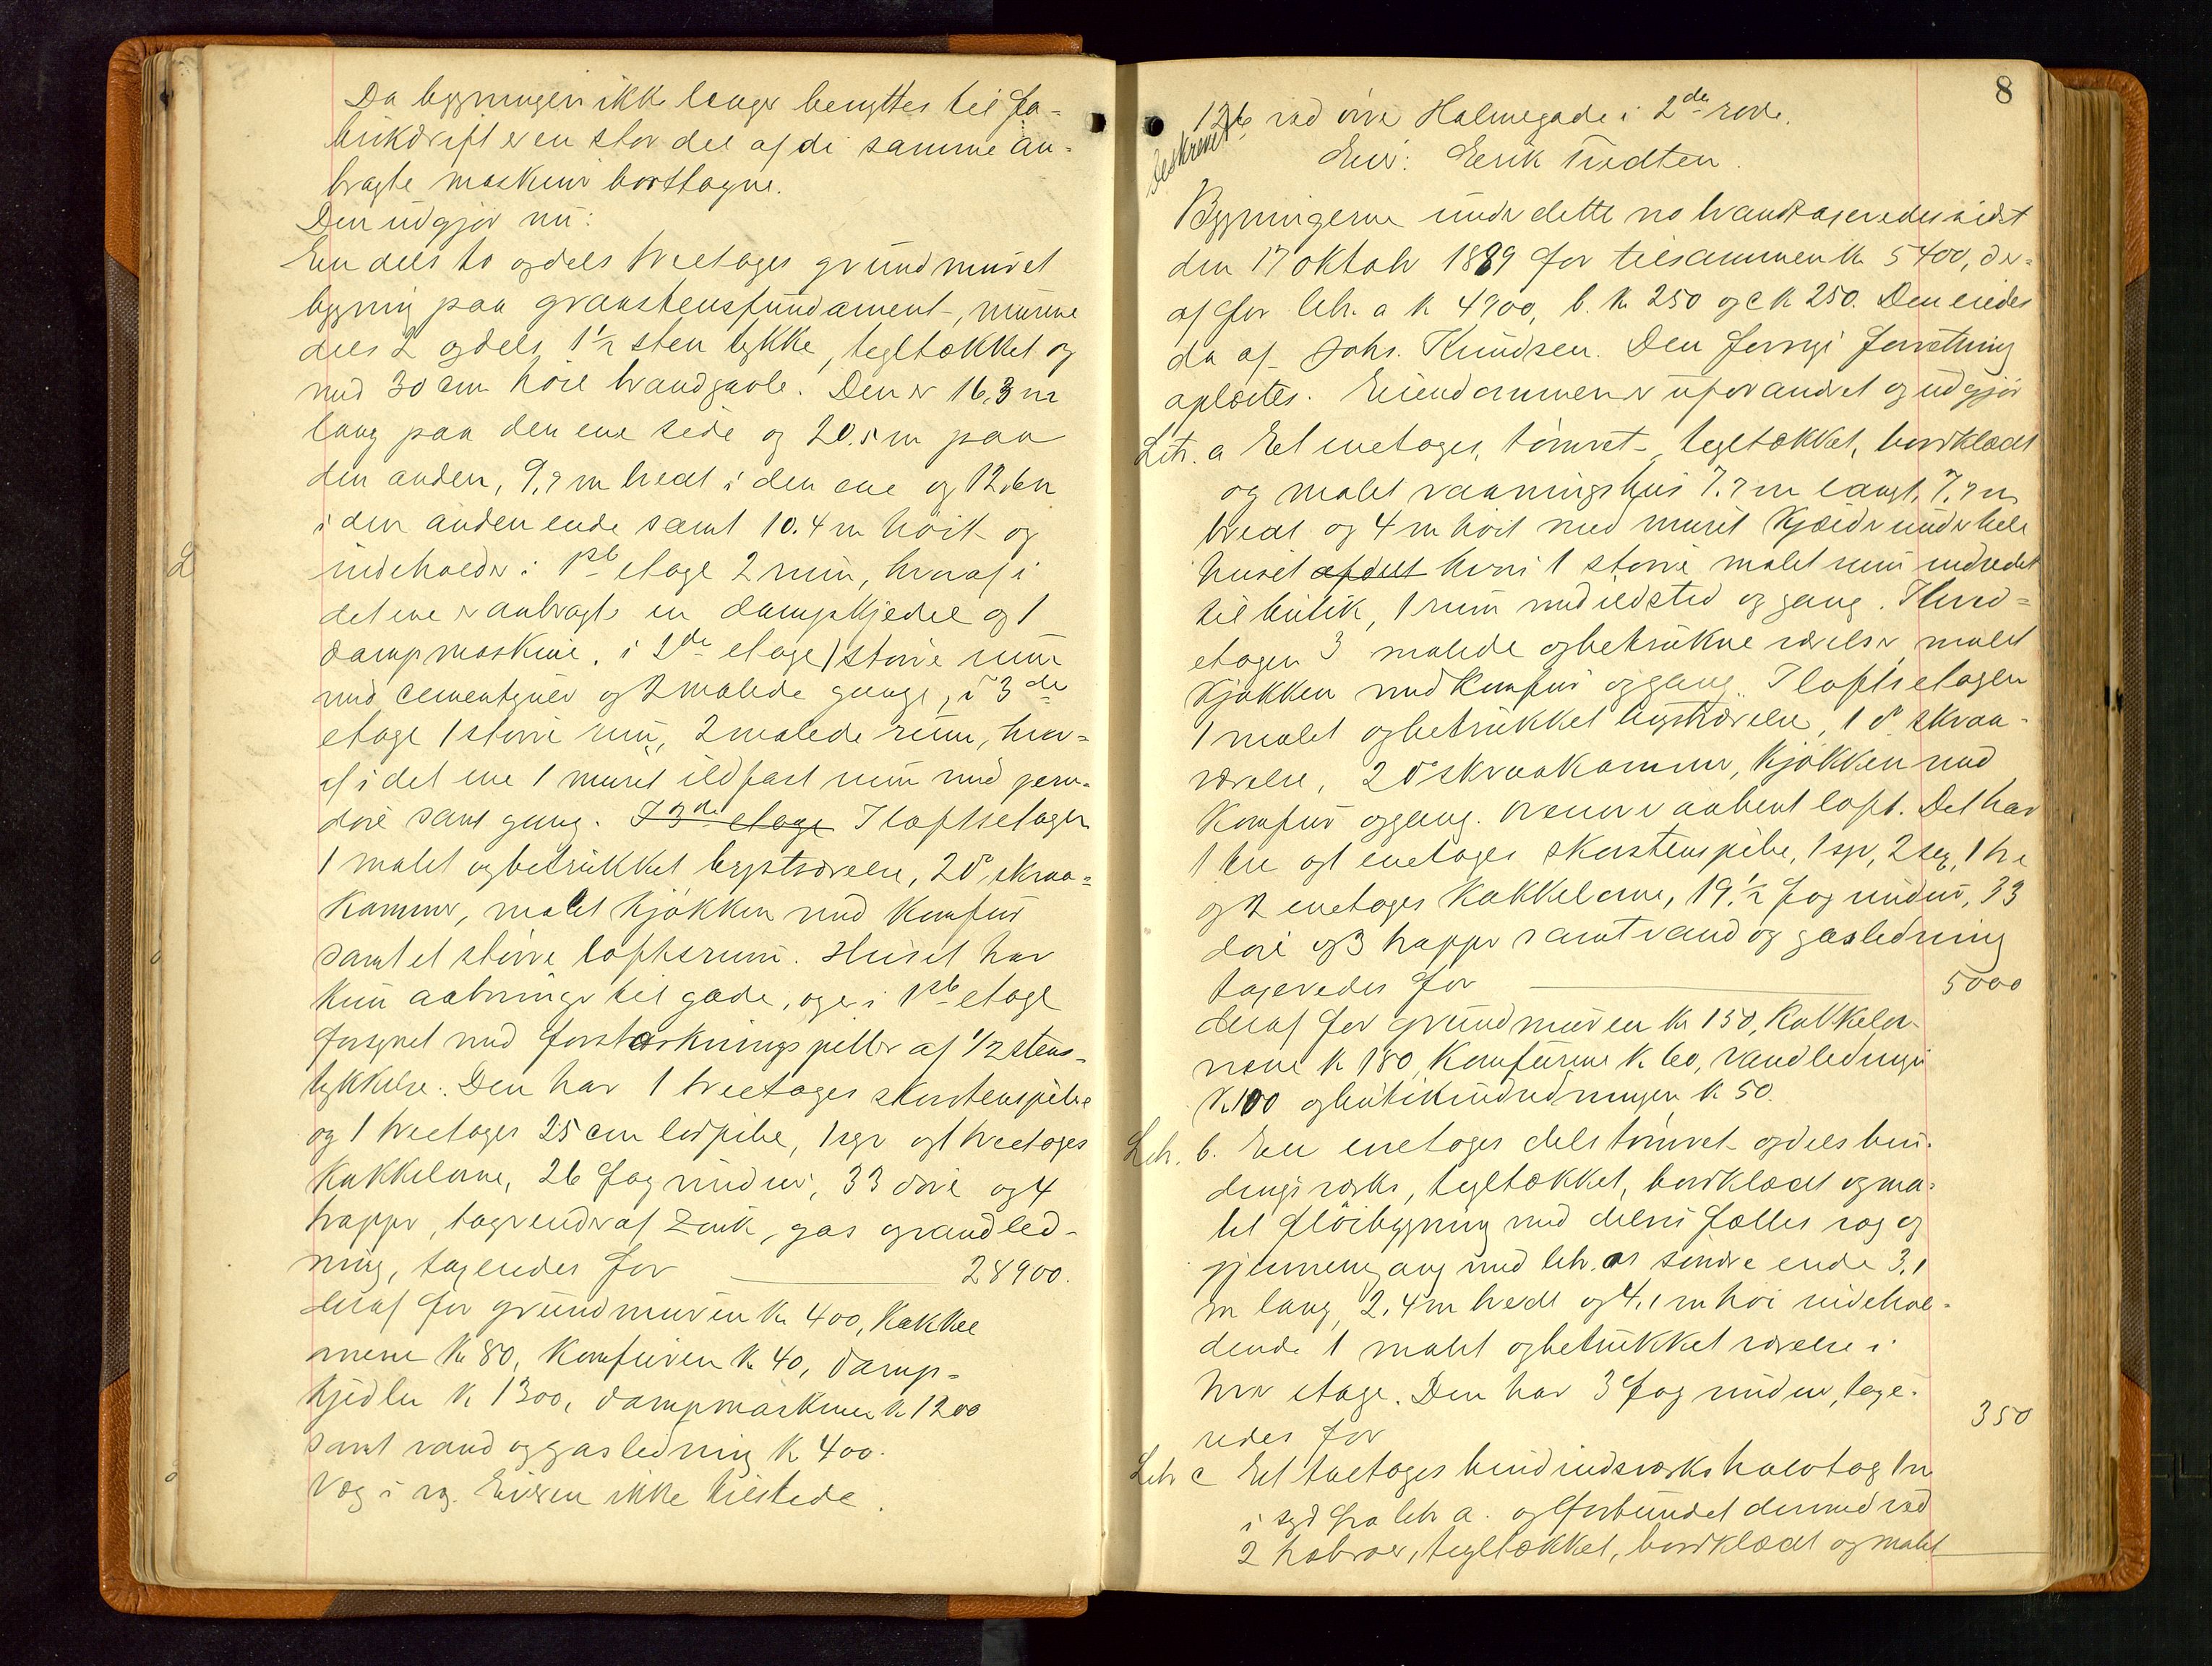 Da bygningen ikke længer benyttes til fa-
brikdrift er en stor del af de samme an-
bragte maskiner borttagne.
Den udgjør nu:
En dels to og dels treetages grundmuret
bygning paa graastensfundament, murene
dels 2 og dels 1½ sten tykke, tegltækket og
med 30 cm høie brandgavle. Den er 16,3 m
lang paa den ene side og 20.5 m paa
den anden, 9,7 m bred i den ene og 12,6 m
i den anden ende samt 10.4 m høit og
indeholder: 1ste etage 2 rum, hvoraf i
det ene er anbragt en dampkjedel og 1
dampmaskine, i 2de etage 1 større rum
med cementgulv og 2 malede gange, i 3de
etage 1 større rum, 2 malede rum, hvor-
af i det ene 1 muret ildfast rum med jern-
døre samt gang. I 3de etage I loftsetagen
1 malet og betrukket kvistværelse, 2 do skraa-
kammer, malet kjøkken med komfur
samt et større loftsrum. Huset har
kun aabninger til gade, og er i 1ste etage
forsynet med forstærkningspiller af ½ stens
tykkelse. Den har 1 treetages skorstenspibe
og 1 treetages 25 cm lodpibe, 1 sgr og 1 treetages
kakkelovne, 26 fag vinduer, 33 døre og 4
trapper, tagrender af zink, gas og vandled-
ning, taxeredes for 28900.
deraf for grundmuren kr 400, kakkel
ovnene kr 80, komfuren kr 40, damp-
kjedlen kr 1300, dampmaskinen kr 1200
samt vand og gasledning kr 400.
Væg i væg. Eieren ikke tilstede.
8
beskrevet
126 ved øvre Holmegade i 2de rode.
Eier: Eerik Tredten.
Bygningerne under dette no brandtaxeredes sidst
den 17 oktobr 1889 for tilsammen kr 5400, der-
af for litr. a kr 4900, b. kr 250 og c kr 250. Den eiedes
da af Johs. Knudsen. Den forrige forretning
oplæstes. Eiendommen er uforandret og udgjør
Litr. a Et enetages, tømret, tegltækket, bordklædt
og malet vaaningshus 7.7 m langt, 7,7 m
bredt og 4 m høit med muret kjælder under hele
huset afdelt hvori 1 større malet rum indredet
til butik, 1 rum med ildsted og gang. I hoved-
etagen 3 malede og betrukne værelser, malet
kjøkken med komfur og gang. I loftsetagen
1 malet og betrukket kvistværelse, 1 do skraa-
værelse, 2 do skraakammer, kjøkken med
komfur og gang. Øverst er aabent loft. Det har
1 tre og 1 enetages skorstenspibe, 1 sgr, 2 seg, 1 tre
og 2 enetages kakkelovne, 19½ fag vinduer, 33
døre og 3 trapper samt vand og gasledning
taxeredes for 5000
deraf for grundmuren kr 150, kakkelov-
nene kr 180, komfurene kr 60, vandledningen
kr 100 og butikindredningen kr 50.
Litr. b. En enetages dels tømret og dels bin-
dingsværks, tegltækket, bordklædt og ma-
let fløibygning med delvis fælles væg og
gjennemgang med litr. as søndre ende 3,1
m lang, 2,4 m bred og 4,1 m høi indehol-
dende 1 malet og betrukket værelse i
hver etage. Den har 3 fag vinduer, taxe-
redes for 350
Litr c Et toetages bindindsværks halvtag 1 m
i syd fra litr a. og forbundet dermed ved
2 træbroer, tegltækket, bordklædt og malet